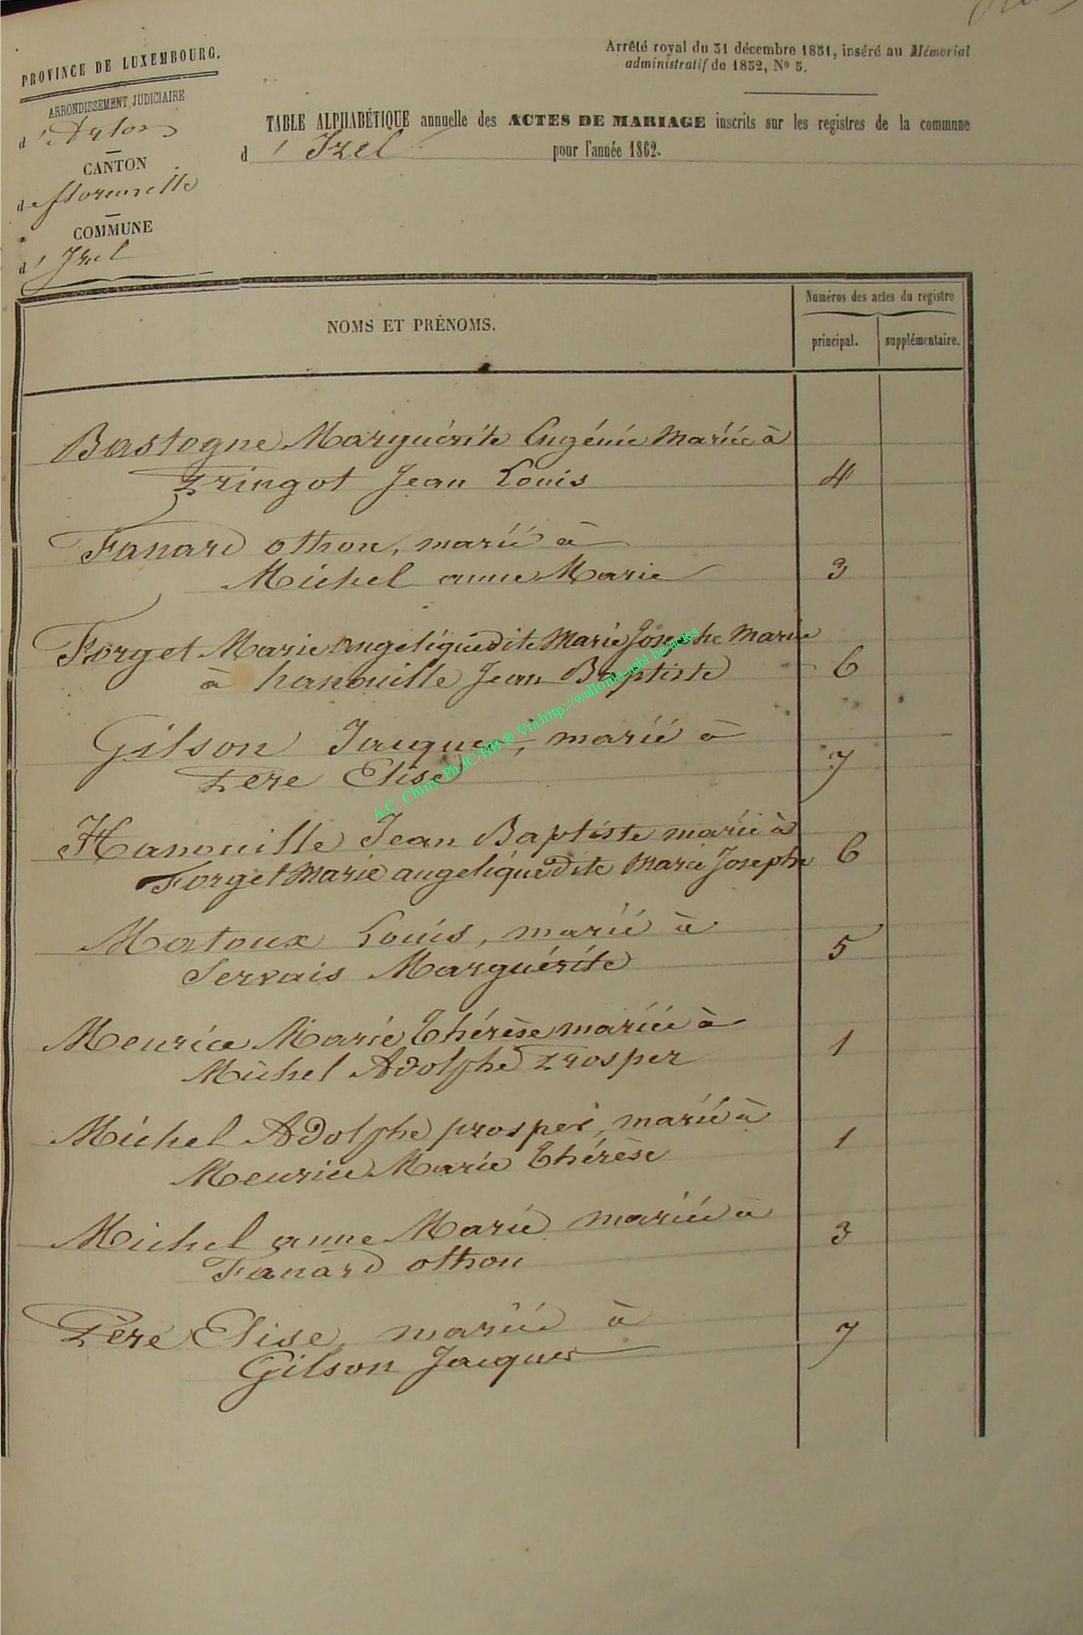 PROVINCE DE LUXEMBOURG.
ARRONDISSEMENT JUDICIAIRE
d'Arlon
CANTON
de florenville
COMMUNE
d'Izel
Arrêté royal du 31 décembre 1851, inséré au Mémorial
administratif de 1852, No 5.
TABLE ALPHABÉTIQUE annuelle des ACTES DE MARIAGE inscrits sur les registres de la commune
d'Izel pour l'année 1862.
NOMS ET PRÉNOMS.
Numéros des actes du registre
principal. supplémentaire.
Bastogne Marguérite Eugénie mariée à
Pringot Jean Louis 4
Fanard othon, marié à
Michel anne Marie 3
Forget Marie angélique dite Marie Josephe Mariée
à hanouille Jean Baptiste 6
Gilson Jacques, marié à
Père Elise 7
Hanouille Jean Baptiste marié à
Forget Marie angelique dite Marie Josephe 6
Matoux Louis, marié à
Servais Marguérite 5
Meurice Marie Thérèse mariée à
Michel Adolphe Prosper 1
Michel Adolphe prosper, marié à
Meurice Marie Thérèse 1
Michel anne Marie mariée à
Fanard othon 3
Père Elise, mariée à
Gilson Jacques 7
A.C. Chiny Ph JC HB ® Via http://wallonia-asbl.be/actes